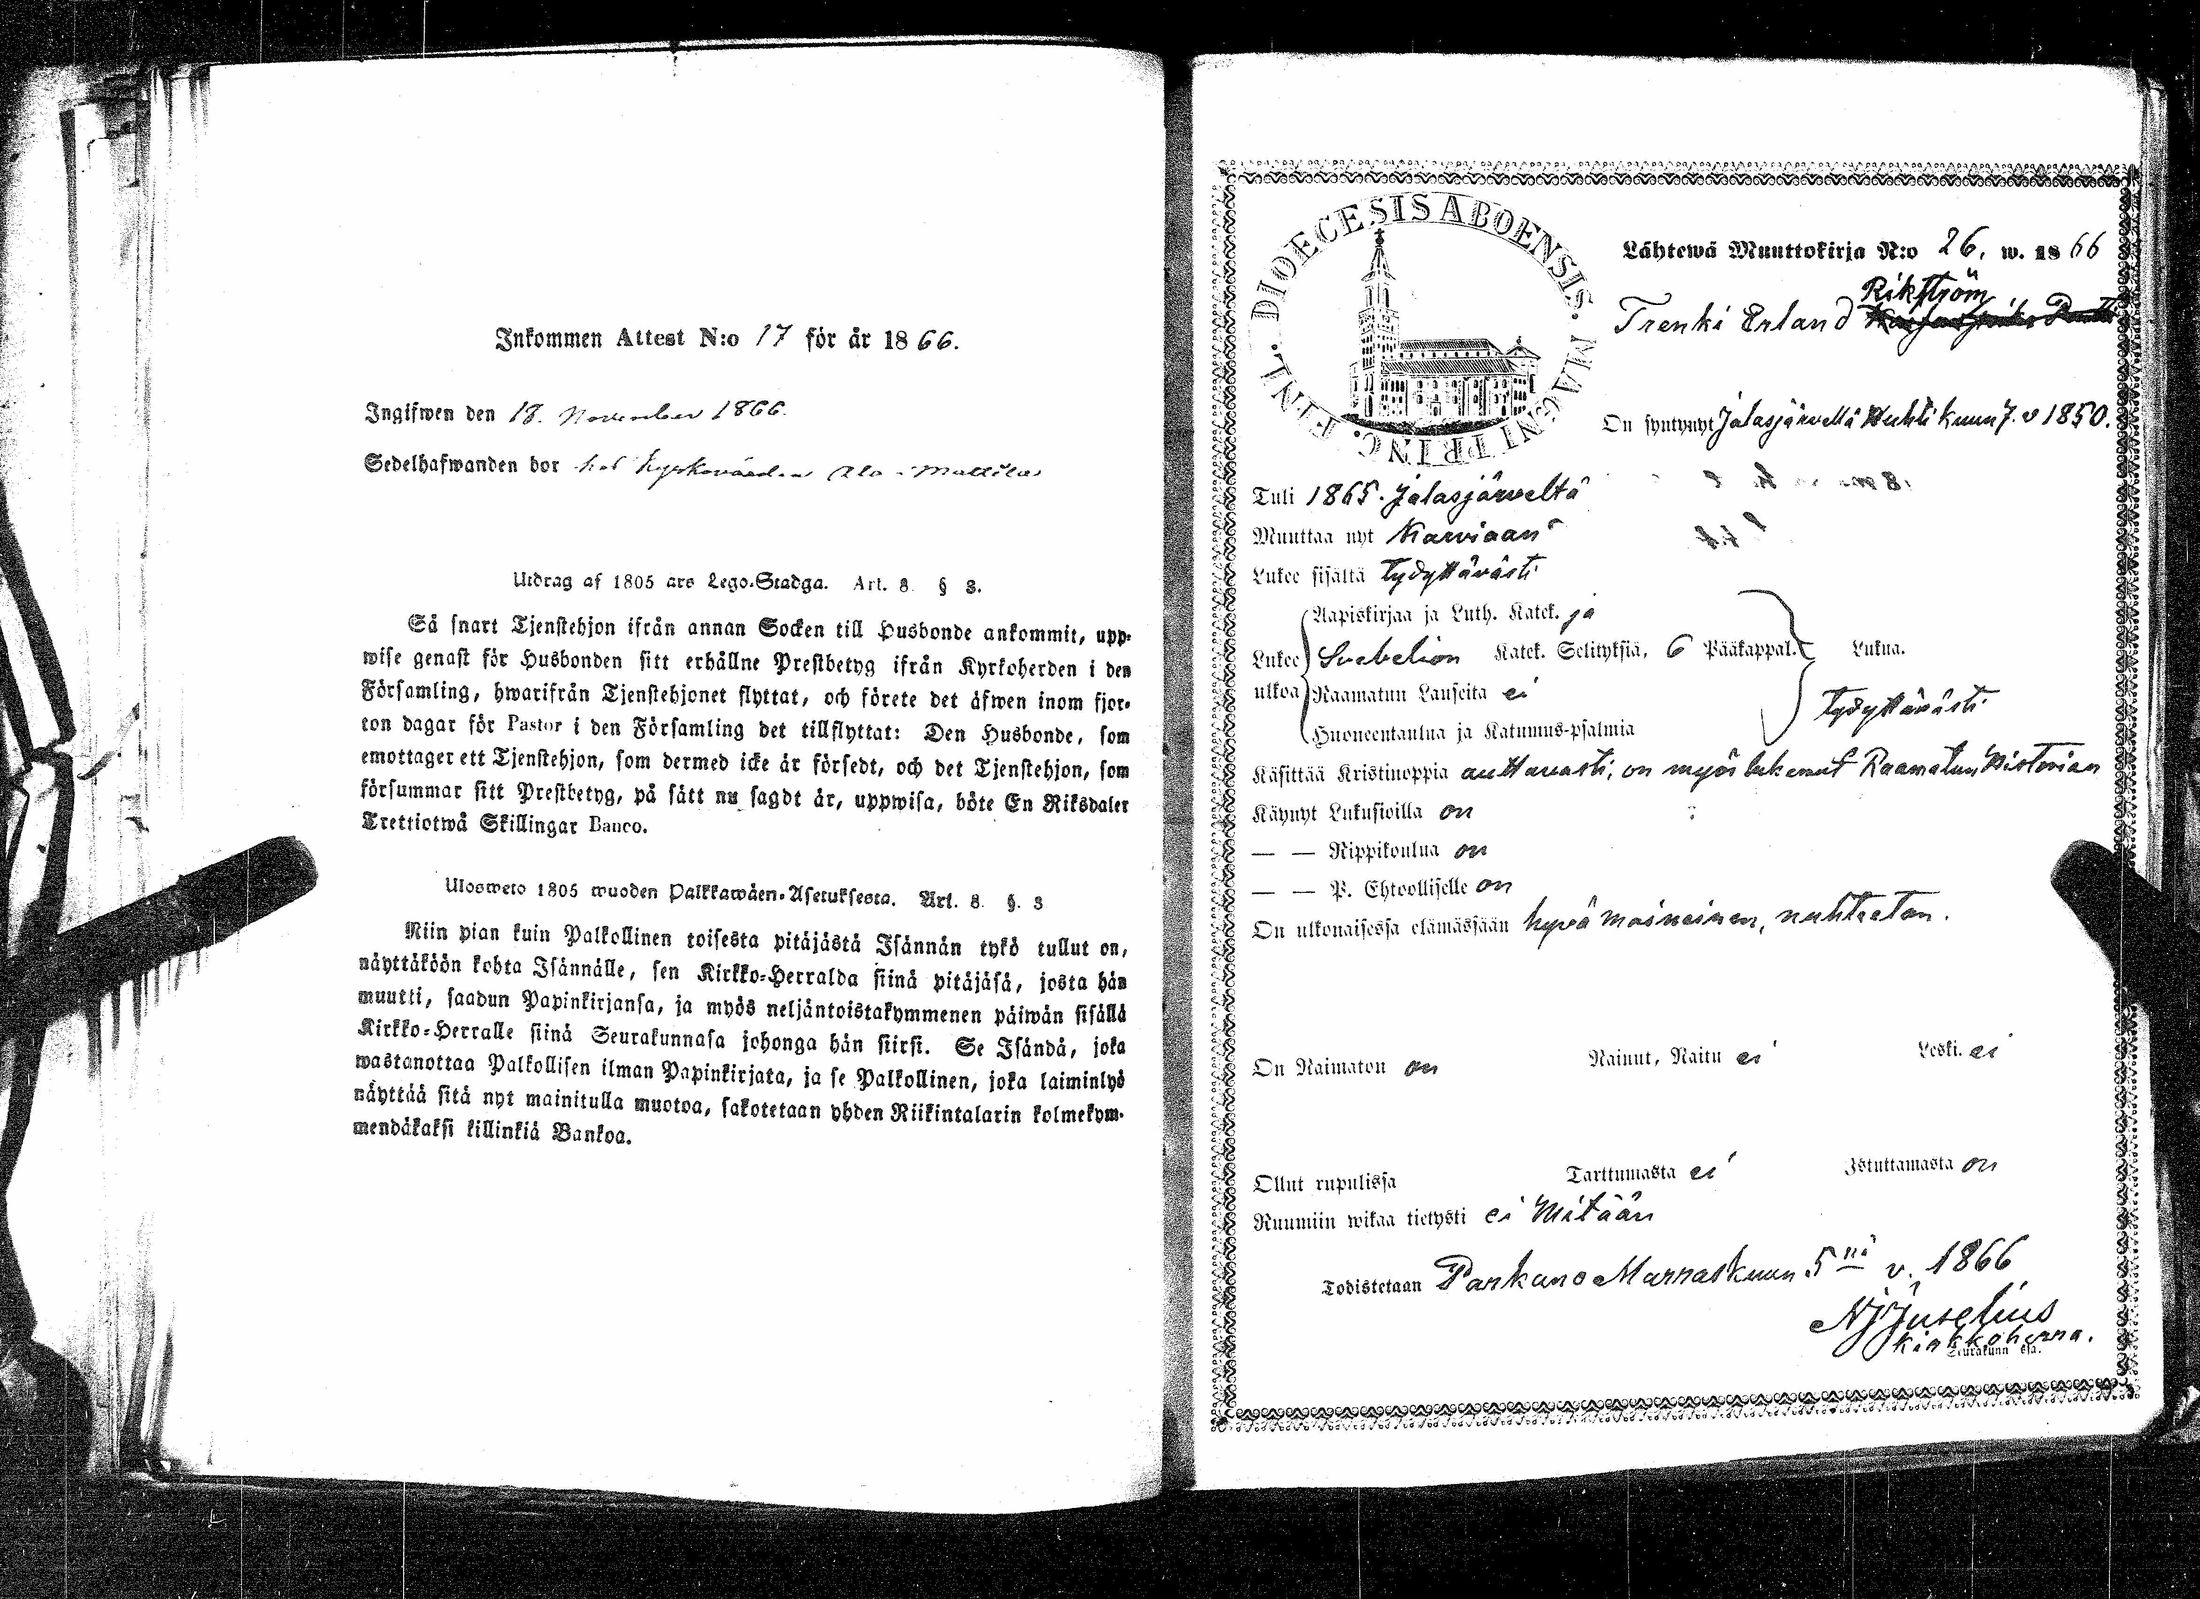 Inkommen Attest N:o 17 för år 1866.
Ingifwen den 18. November 1866.
Sedelhafwanden bor hos Kyrkovärden Ala-Mattila
Utdrag af 1805 års Lego-Stadga. Art. 8. § 3.
Så snart Tjenstehjon ifrån annan Socken till Husbonde ankommit, upp-
wise genast för Husbonden sitt erhållne Prestbetyg ifrån Kyrkoherden i den
Församling, hwarifrån Tjenstehjonet flyttat, och förete det äfwen inom fjor-
ton dagar för Pastor i den Församling det tillflyttat: Den Husbonde, som
emottager ett Tjenstehjon, som dermed icke är försedt, och det Tjenstehjon, som
försummar sitt Prestbetyg, på sätt nu sagdt är, uppwisa, böte En Riksdaler
Trettiotwå Skillingar Banco.
Ulosweto 1805 wuoden Palkkawäen-Asetuksesta. Art. 8. §. 3
Niin pian kuin Palkollinen toisesta pitäjästä Isännän tykö tullut on,
näyttäköön kohta Isännälle, sen Kirkko-Herralda siinä pitäjäsä, josta hän
muutti, saadun Papinkirjansa, ja myös neljäntoistakymmenen päiwän sisällä
Kirkko-Herralle siinä Seurakunnasa johonga hän siirsi. Se Isändä, joka
wastanottaa Palkollisen ilman Papinkirjata, ja se Palkollinen, joka laiminlyö
näyttää sitä nyt mainitulla muotoa, sakotetaan yhden Riikintalarin kolmekym-
mendäkaksi killinkiä Bankoa.
DIOECESIS ABOENSIS. MAGNI PRINC. FINL.
Lähtewä Muuttokirja N:o 26. w. 1866
Rikström
Trenki Erland
On syntynyt Jalasjärvellä Huhti kuun 7. v 1850.
Tuli 1865. Jalasjärveltä
Muuttaa nyt Karviaan
Lukee sisältä tydyttävästi
Aapiskirjaa ja Luth. Katek. ja
Lukee Svebelion Katek. Selityksiä, 6 Pääkappal. Lukua.
ulkoa Raamatun Lauseita ei
tydyttävästi
Huoneentaulua ja Katumus-psalmia
Käsittää Kristinoppia auttavasti, on myös lukenut Raamatun Historian
Käynyt Lukusioilla on
— — Rippikoulua on
— — P. Ehtoolliselle on
On ulkonaisessa elämässään hyvä maineinen, nuhteeton.
On Naimaton on Nainut, Naitu ei Leski. ei
Ollut rupulissa Tarttumasta ei Istuttamasta on
Ruumiin wikaa tietysti ei Mitään
Todistetaan Parkano Marraskuun 5nä v. 1866
NJJuselius
Kirkkoherra.